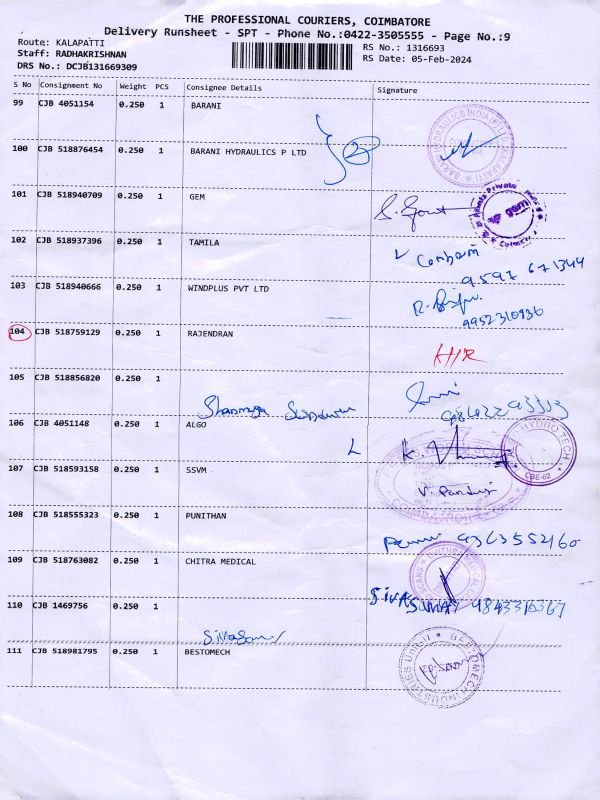 THE PROFESSIONAL COURIERS, COIMBATORE
Delivery Runsheet - SPT - Phone No.:0422-3505555 - Page No.:9
Route: KALAPATTI
Staff: RADHAKRISHNAN
DRS No.: DCJB131669309
RS No.: 1316693
RS Date: 05-Feb-2024
S No Consignment No Weight PCS Consignee Details Signature
99 CJB 4051154 0.250 1 BARANI
100 CJB 518876454 0.250 1 BARANI HYDRAULICS P LTD 2
101 CJB 518940709 0.250 1 GEM
gem
102 CJB 518937396 0.250 1 TAMILA
9597 671344
103 CJB 518940666 0.250 1 WINDPLUS PVT LTD
9952310936
104 CJB 518759129 0.250 1 RAJENDRAN
H/R
105 CJB 518856820 0.250 1
Shanmuga
106 CJB 4051148 0.250 1 ALGO
HYDRO TECH
CBE-62
107 CJB 518593158 0.250 1 SSVM
108 CJB 518555323 0.250 1 PUNITHAN
9363552160
109 CJB 518763082 0.250 1 CHITRA MEDICAL
110 CJB 1469756 0.250 1
111 CJB 518981795 0.250 1 BESTOMECH
BESTOMECH INDUSTRIES UNIT II